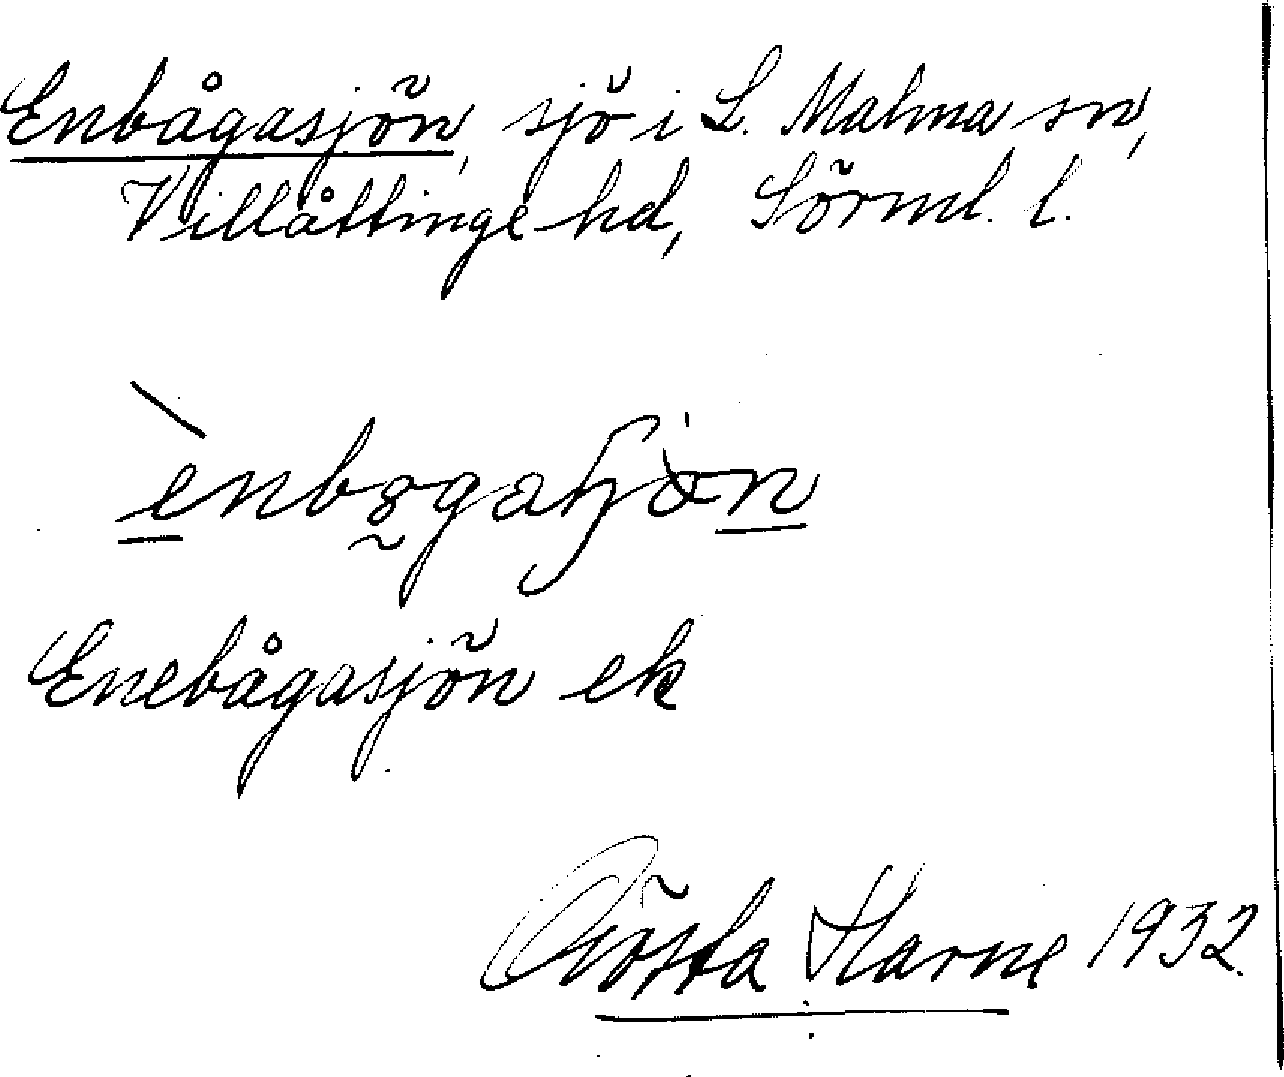 Enbågasjön, sjö i L. Malma sn,
Villåttinge hd, Sörml. l.
Enebågasjön ek
Gösta Harne 1932.